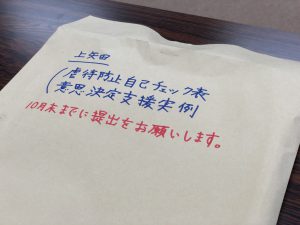 上矢田
(虐待防止自己チェック表
(意思決定支援実例
10月末までに提出をお願いします。